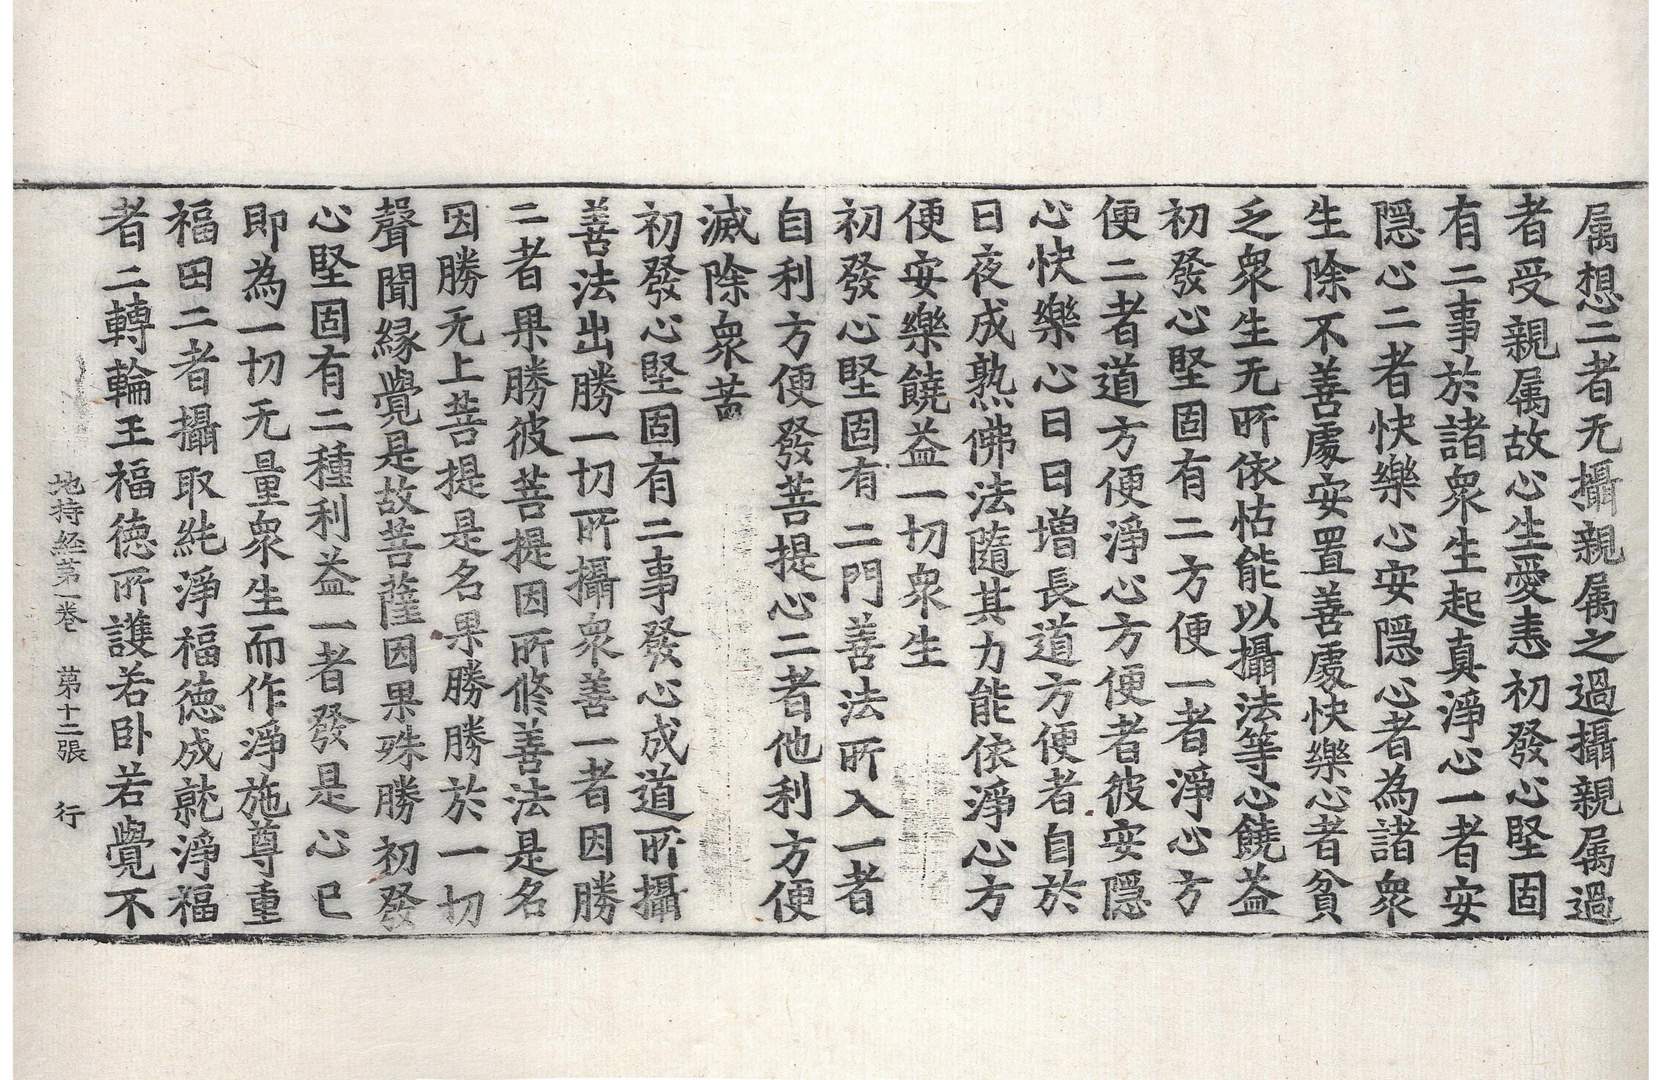 属想二者无攝親属之過攝親属過
者受親属故心生愛恚初發心堅固
有二事於諸衆生起真淨心一者安
隠心二者快樂心安隠心者為諸衆
生除不善處安置善處快樂心者貧
乏衆生无所依怙能以攝法等心饒益
初發心堅固有二方便一者淨心方
便二者道方便淨心方便者彼安隠
心快樂心日日增長道方便者自於
日夜成熟佛法隨其力能依淨心方
便安樂饒益一切衆生
初發心堅固有二門善法所入一者
自利方便發菩提心二者他利方便
滅除衆苦
初發心堅固有二事發心成道所攝
善法出勝一切所攝衆善一者因勝
二者果勝彼菩提因所修善法是名
因勝无上菩提是名果勝勝於一切
聲聞緣覺是故菩薩因果殊勝初發
心堅固有二種利益一者發是心已
即為一切无量衆生而作淨施尊重
福田二者攝取純淨福德成就淨福
者二轉輪王福德所護若卧若覺不
地持経苐一卷 苐十二張 行